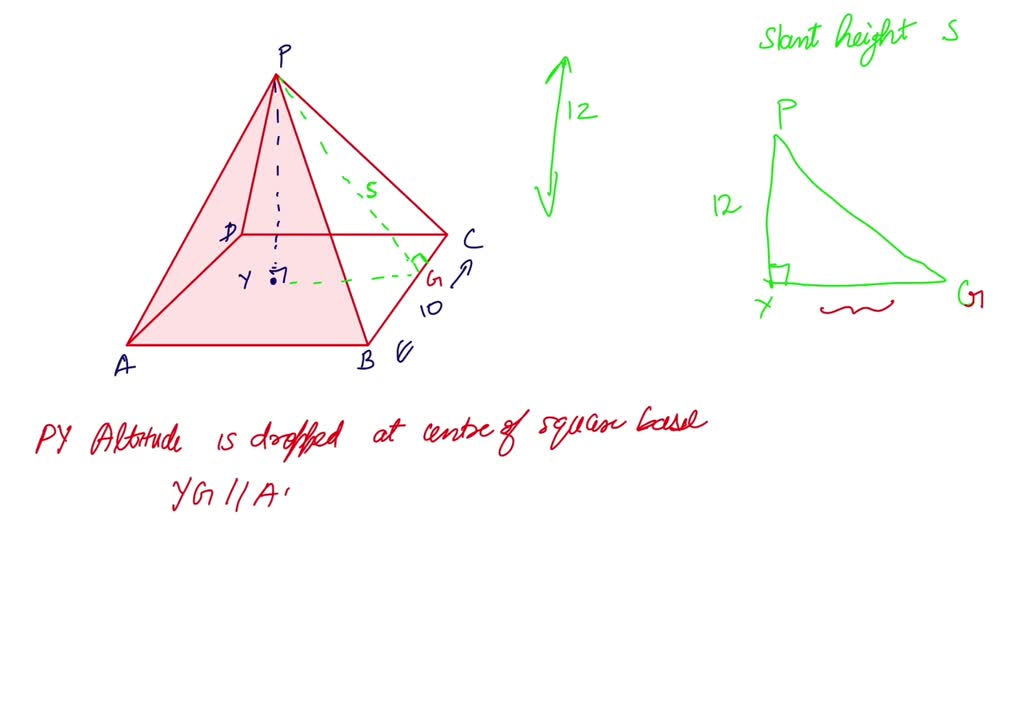 Slant height s
P
12
S
D
C
Y
G
10
A
B
P
12
Y
G
PY Altitude is dropped at centre of square base
YG // A